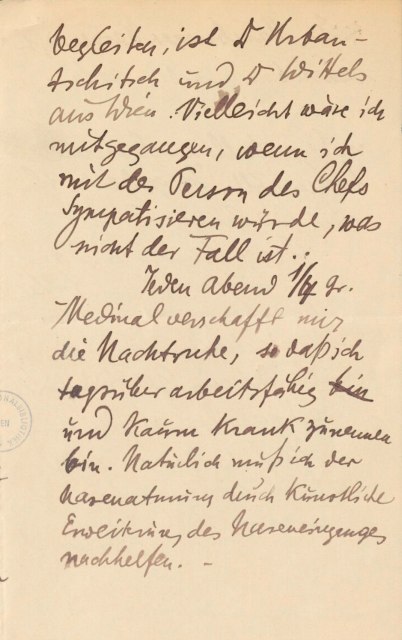 begleiten, ist Dr Urban-
tschitsch und Dr Wittels
aus Wien. Vielleicht wäre ich
mitgegangen, wenn ich
mit der Person des Chefs
sympatisieren würde, was
nicht der Fall ist..
Jeden Abend 1/4 gr.
Medinal verschafft mir
die Nachtruhe, so daß ich
tagsüber arbeitsfähig bin
und kaum krank zu nennen
bin. Natürlich muß ich der
Nasenatmung durch künstliche
Erweiterung des Naseneinganges
nachhelfen. –